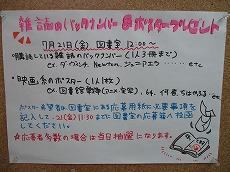 雑誌のバックナンバー・ポスタープレゼント
7月21日(金) 図書室 12:00～
・購読している雑誌のバックナンバー(1人3冊まで)
ex. ダ・ヴィンチ, Newton, ジュニアエラ ‥‥ etc
・映画のポスター(1人1枚)
ex. 図書館戦争(アニメ・実写), など etc.
ポスター希望者は図書室にある応募用紙に必要事項を
記入して、21(金) 11:30までに図書室の応募箱へ投函
してください。
☆応募者多数の場合は当日抽選になります。